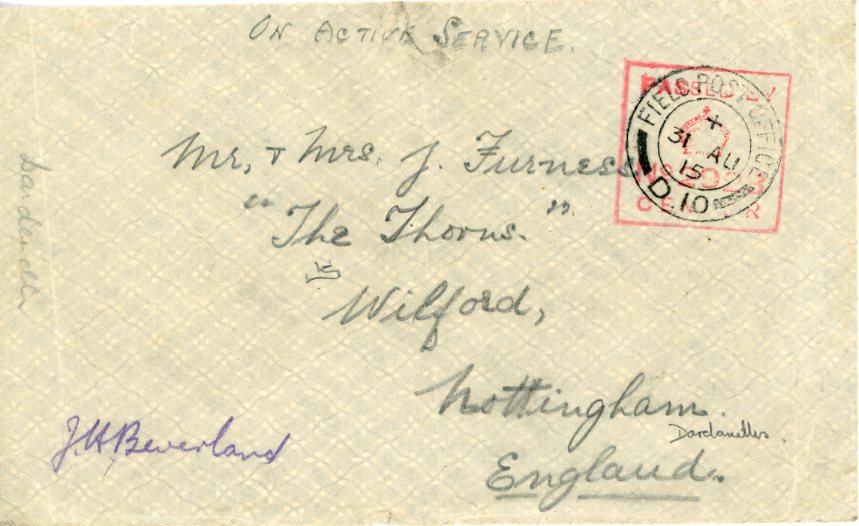 ON ACTIVE SERVICE.
PASSED BY
No 2023
CENSOR
FIELD POST OFFICE
+
31 AU
15
D.10
Mr, & Mrs. J. Furness
"The Thorns."
Wilford,
Nottingham.
Dardanelles.
England.
JH Beverland
Dardanelles